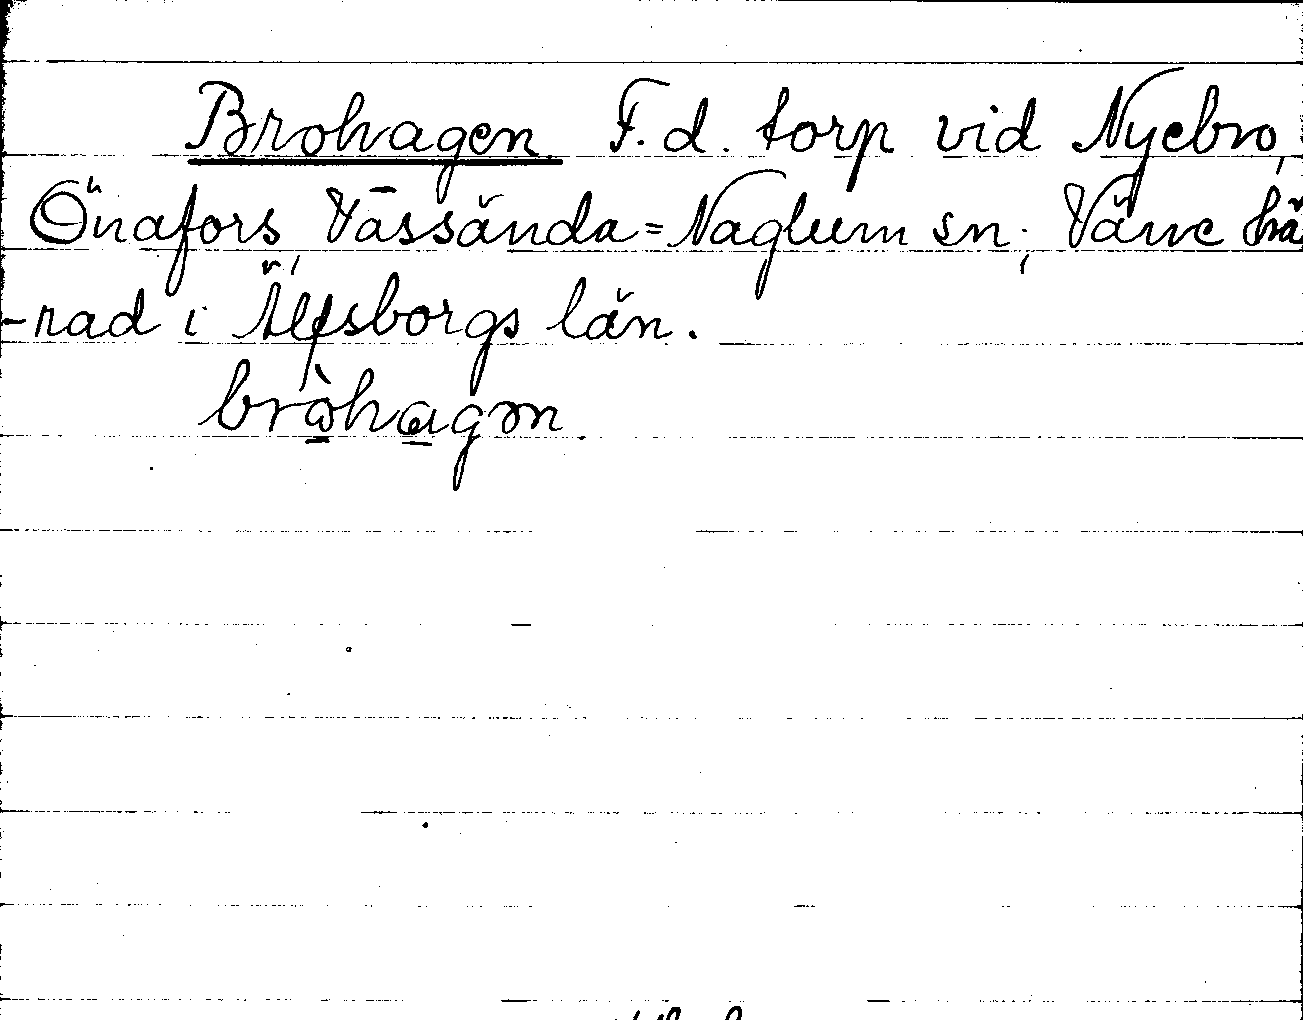 Brohagen F.d. torp vid Nyebro,
Önafors, Vassända=Naglum sn., Väne hä
-rad i Älfsborgs län.
bròhagən